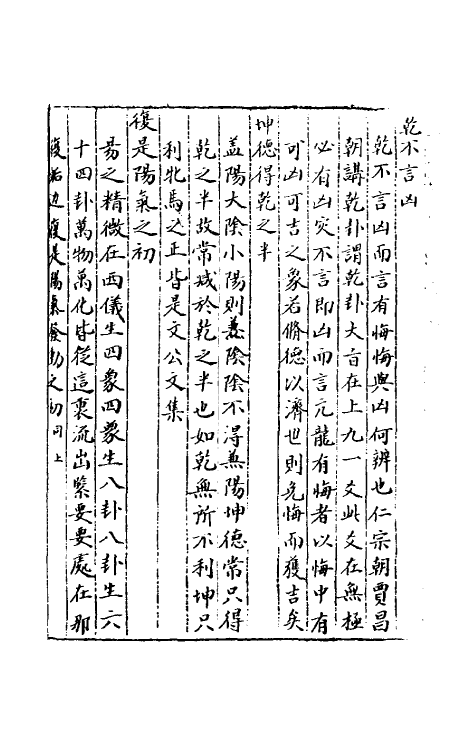 乾不言凶
乾不言凶而言有悔悔與凶何辨也仁宗朝賈昌
朝講乾卦謂乾卦大旨在上九一爻此爻在無極
必有凶灾不言即凶而言亢龍有悔者以悔中有
可凶可吉之象若脩德以濟世則免悔而獲吉矣
坤德得乾之半
盖陽大陰小陽則兼陰陰不淂兼陽坤德常只得
乾之半故常减於乾之半也如乾無所不利坤只
利牝馬之正皆是文公文集
復是陽氣之初
易之精微在両儀生四象四象生八卦八卦生六
十四卦萬物萬化皆從這裏流出緊要要處在那
復姤边復是陽氣發動之初同上